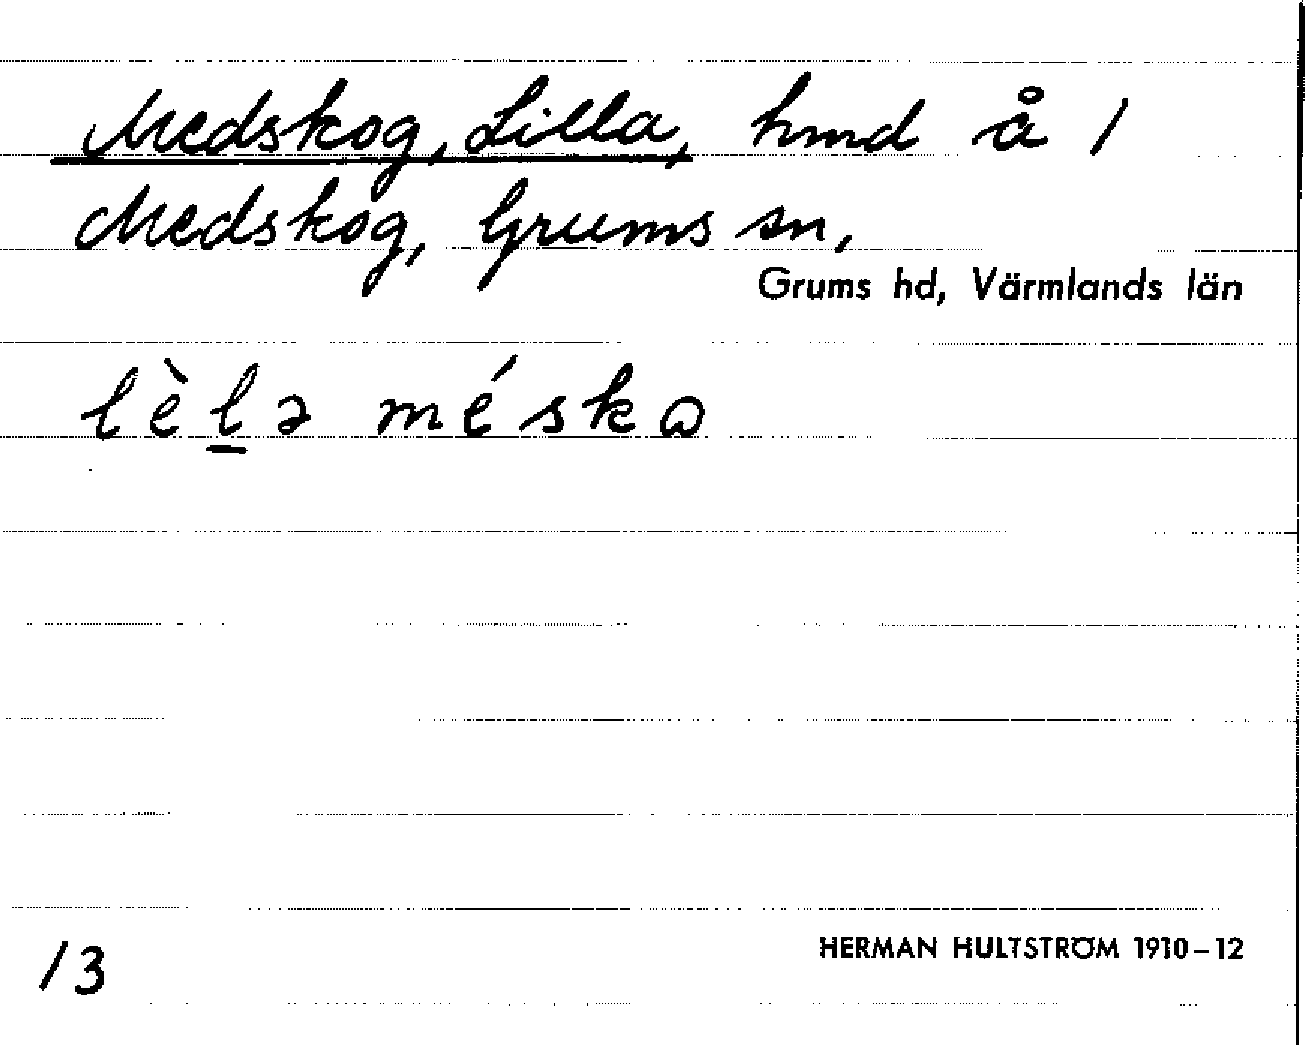 Medskog, Lilla, hmd å 1
Medskog, Grums sn,
Grums hd, Värmlands län
lèl̲ə méskɷ
13
HERMAN HULTSTRÖM 1910–12